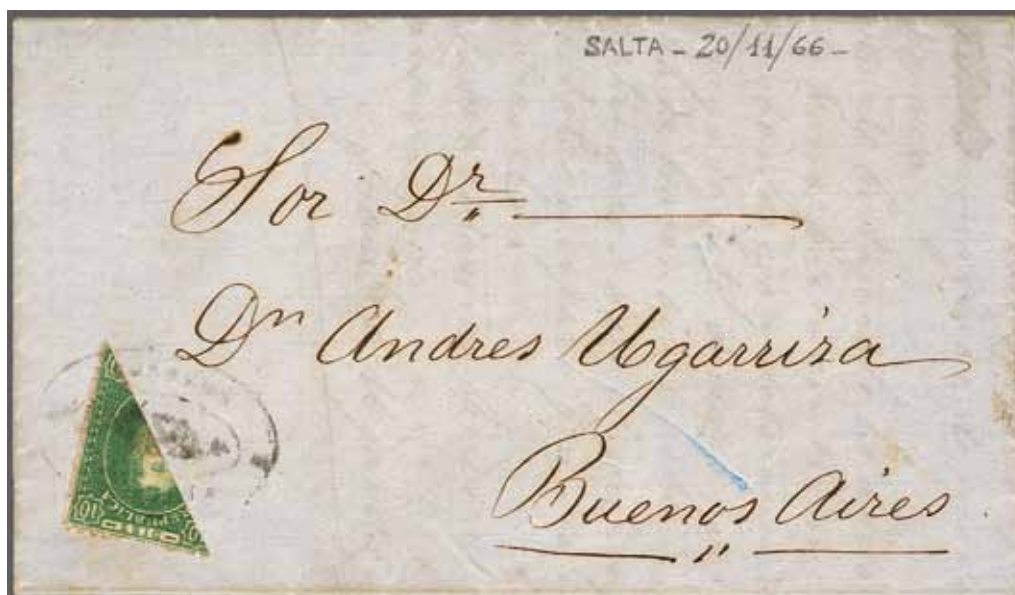 SALTA - 20/11/66 -
Sor Dr
Dn Andres Ugarriza
Buenos Aires
10